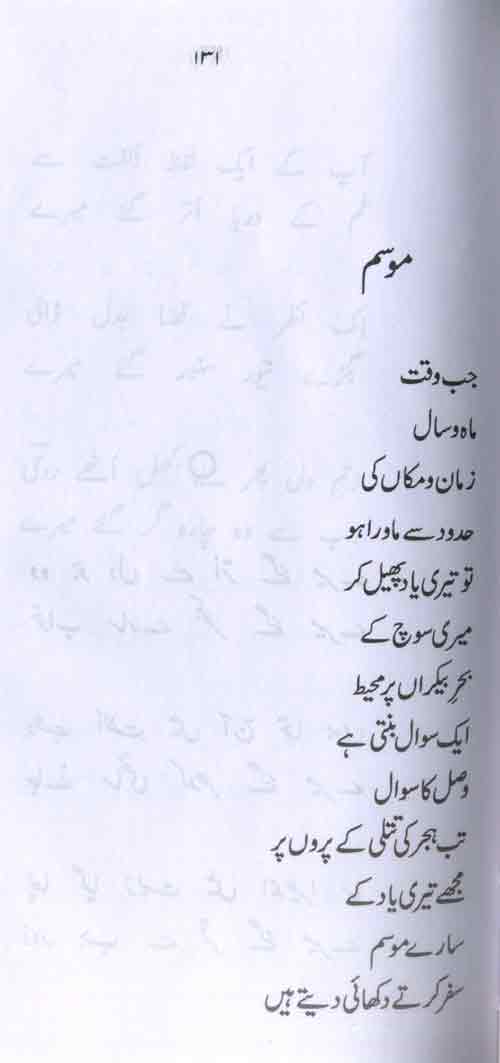 ۱۳۱
موسم
جب وقت
ماہ و سال
زمان و مکاں کی
حدود سے ماورا ہو
تو تیری یاد پھیل کر
میری سوچ کے
بحرِ بیکراں پر محیط
ایک سوال بنتی ہے
وصل کا سوال
تب ہجر کی تتلی کے پروں پر
مجھے تیری یاد کے
سارے موسم
سفر کرتے دکھائی دیتے ہیں